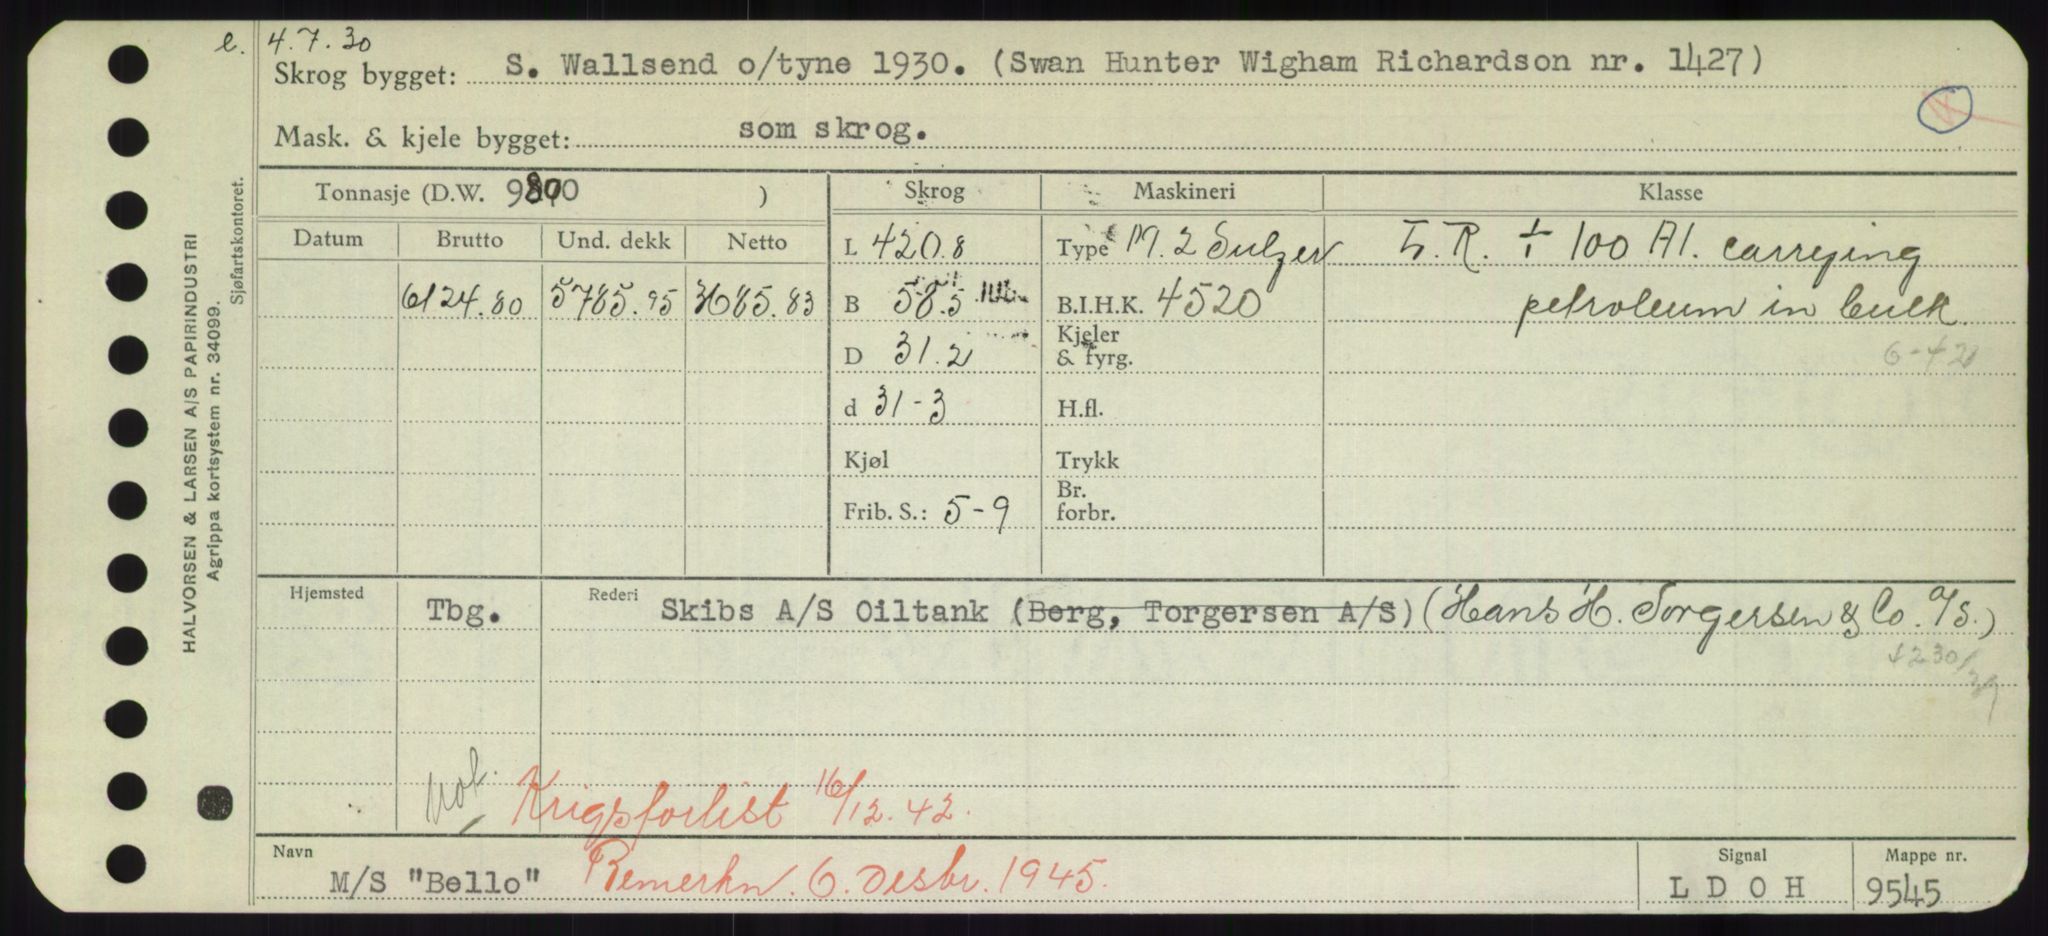 e. 4.7.30
Skrog bygget: S. Wallsend o/tyne 1930. (Swan Hunter Wigham Richardson nr. 1427)
Mask. & kjele bygget: som skrog.
Tonnasje (D.W. 9800 ) Skrog Maskineri Klasse
Datum Brutto Und. dekk Netto L 420.8 Type M. 2 Sulzer L.R. + 100 A1. carrying
6124.80 5785.95 3685.83 B 58.5 B.I.H.K. 4520 petroleum in bulk
D 31.2 Kjeler & fyrg. 6-42
d 31-3 H.fl.
Kjøl Trykk
Frib. S.: 5-9 Br. forbr.
Hjemsted Tbg. Rederi Skibs A/S Oiltank (Berg, Torgersen A/S) (Hans H. Torgersen & Co. A/S.)
Krigsforlist 16/12.42.
Navn M/S "Bello" Bemerkn. 6. Desbr. 1945.
Signal L D O H
Mappe nr. 9545
HALVORSEN & LARSEN A/S PAPIRINDUSTRI
Agrippa kortsystem nr. 34099.
Sjøfartskontoret.